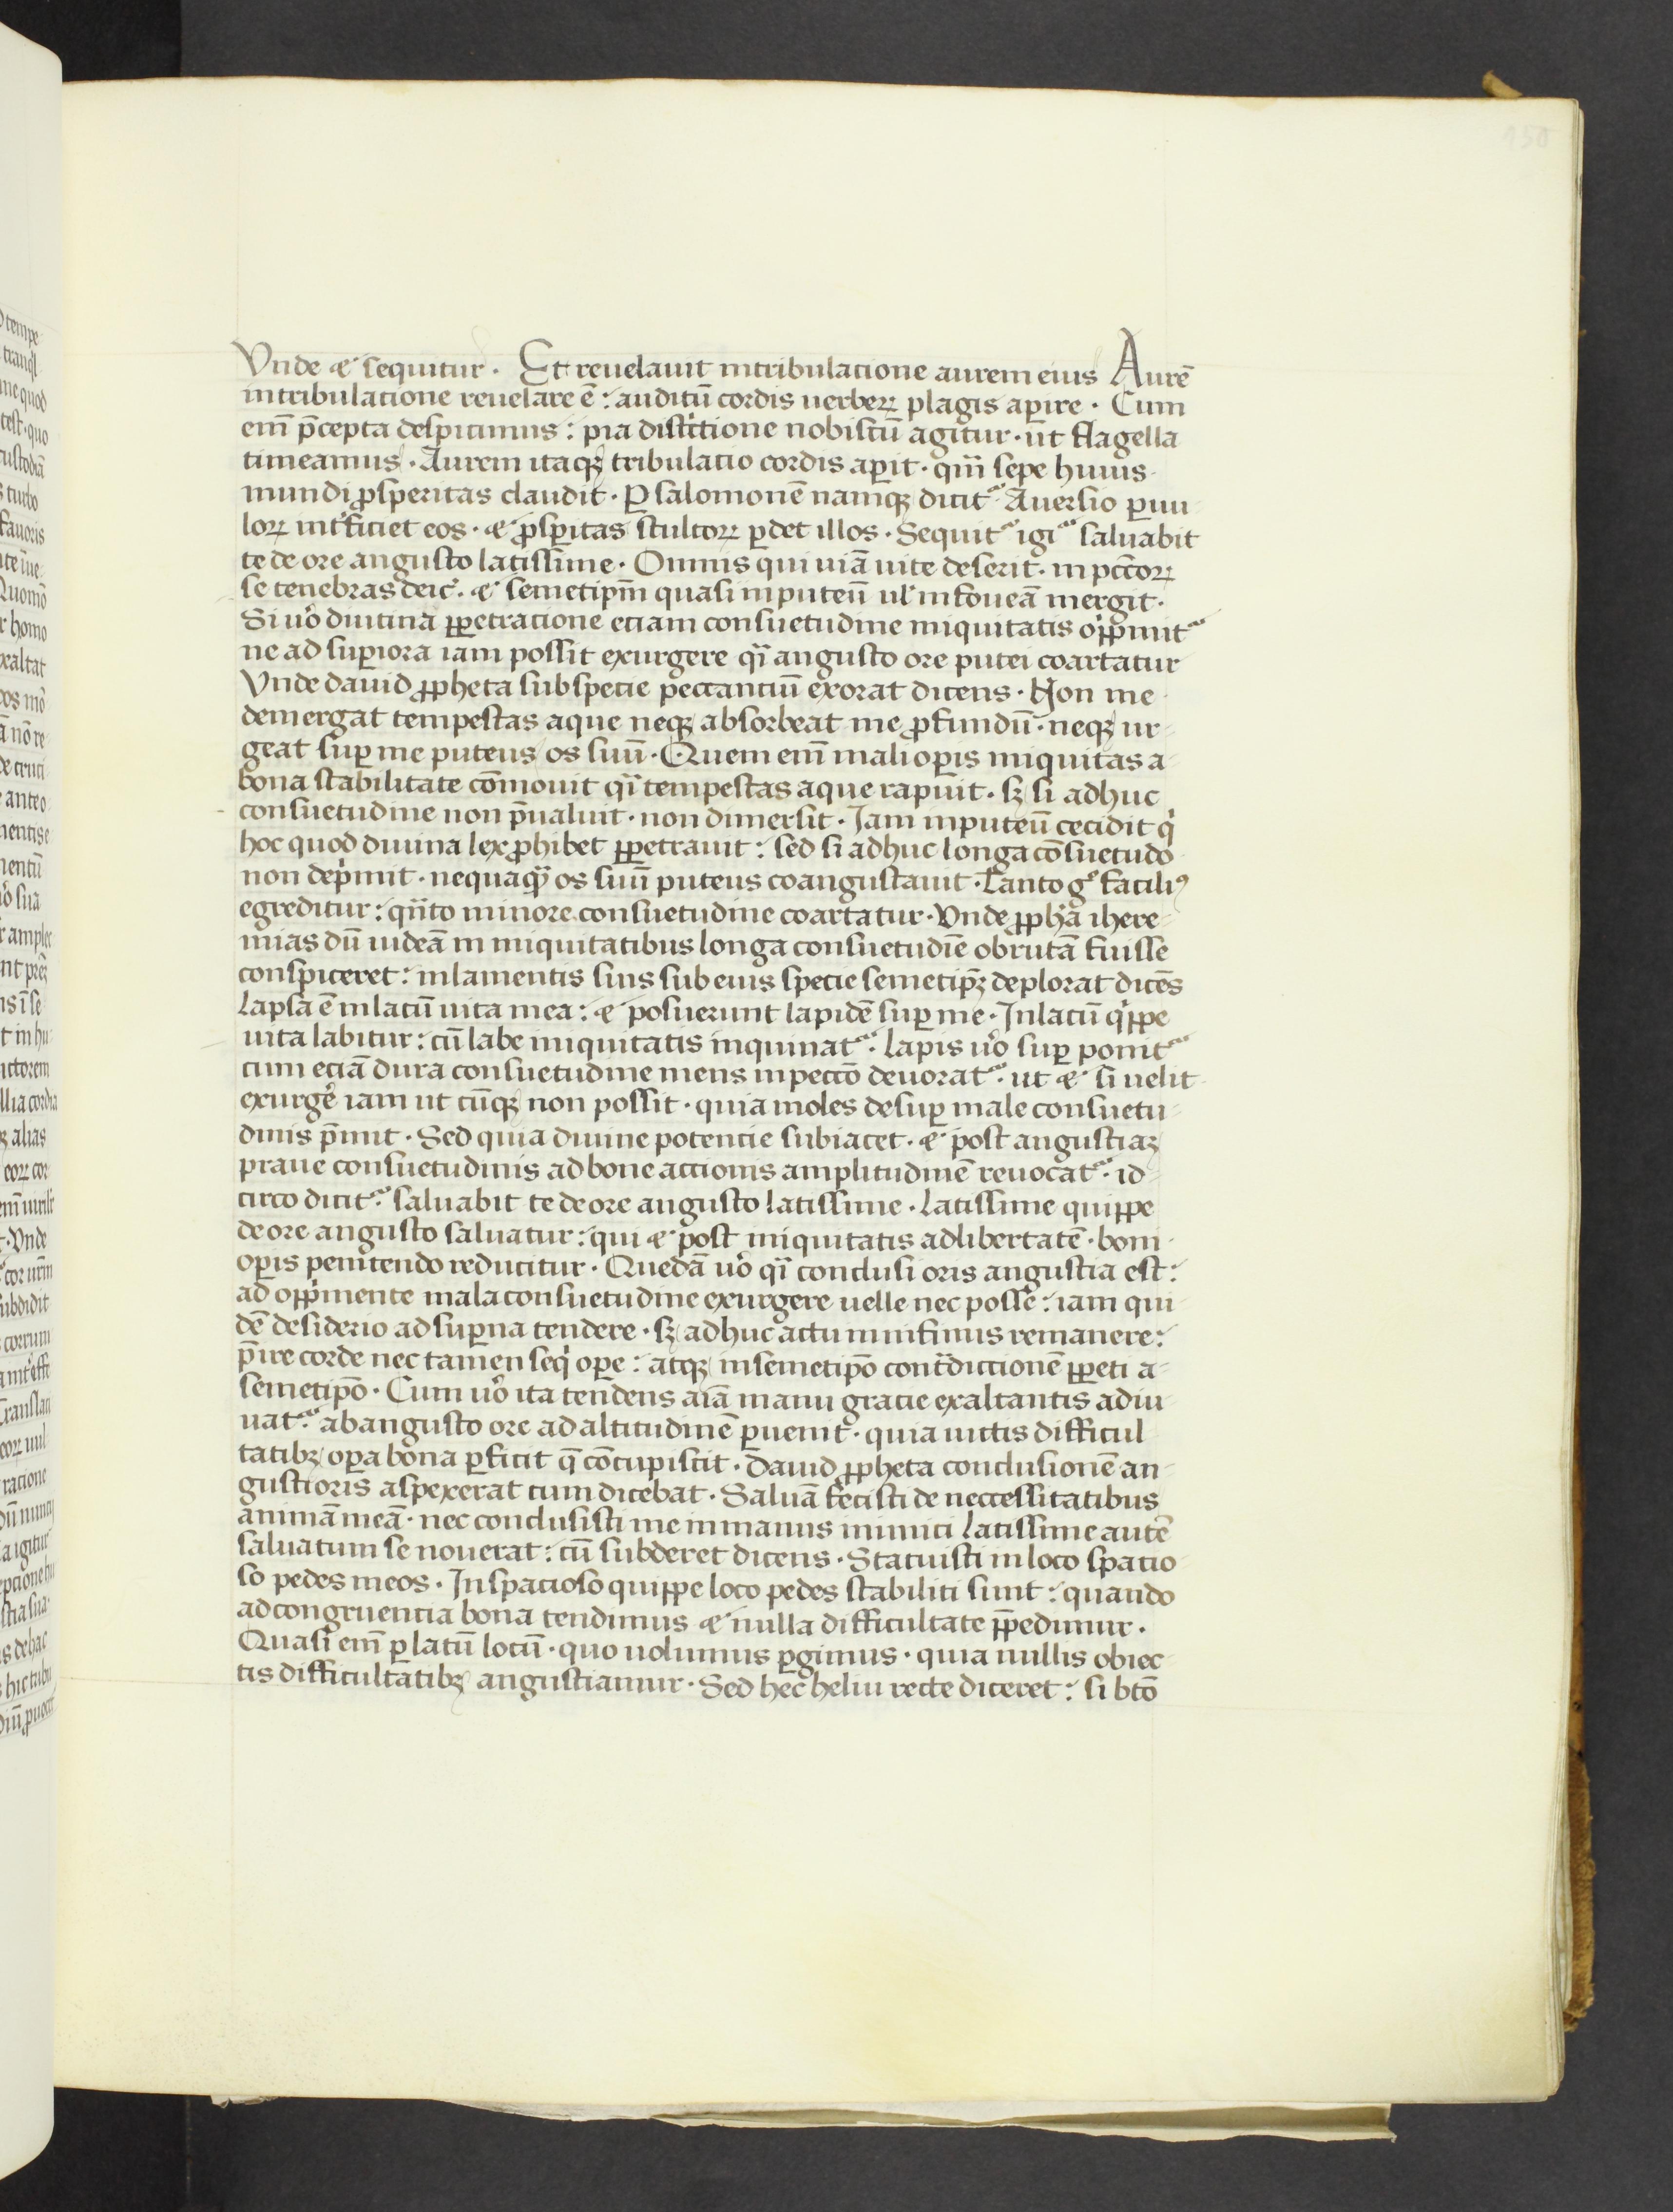 Vnde ⁊ sequitur · Et reuelauit in tribulacione aurem eius Aurē
in tribulacione reuelare ē : auditū cordis uerberꝝ plagis aꝑire · Cum
em̄ p̄cepta despicimus : pia districtione nobiscū agitur · ut flagella
timeamus · Aurem itaqꝫ tribulacio cordis aꝑit · qm̄ sepe huius
mundi ꝓsperitas claudit · Ꝑ salomonē namqꝫ dicit᷑ Auersio ꝑuu
lorꝝ int̉ficiet eos · ⁊ ꝓsꝑitas stultorꝝ ꝑdet illos · Sequit᷑ igi᷑ saluabit
te de ore angusto latissime · Omnis qui uiā uite deserit · in pctōrꝝ
se tenebras deic̉ · ⁊ semetip̄m quasi in puteū ul̉ in foueā mergit ·
Si u̓o diutina ꝑpetracione eciam consuetudine iniquitatis opp̓mit᷑
ne ad suꝑiora iam possit exurgere qͣi angusto ore putei coartatur
Vnde dauid ꝓpheta sub specie peccanciū exorat dicens · Non me
demergat tempestas aque neqꝫ absorbeat me ꝓfundū · neqꝫ ur
geat suꝑ me puteus os suū · Quem em̄ mali oꝑis iniquitas a
bona stabilitate cōmouit qͣi tempestas aque rapuit · sꝫ si adhuc
consuetudine non p̄ualuit · non dimersit · Iam in puteū cecidit qͥ
hoc quod diuina lex ꝓhibet ꝑpetrauit : sed si adhuc longa cōsuetudo
non dep̓mit · nequaqͣꝫ os suū puteus coangustauit · Tanto gͦ faciliꝰ
egreditur : qͣnto minore consuetudine coartatur · Vnde ꝓpha ihere
mias dū iudeā in iniquitatibus longa consuetudīe obrutā fuisse
conspiceret : in lamentis suis sub eius specie semetipꝫ deplorat dicēs
Lapsa ē in lacū uita mea : ⁊ posuerunt lapidē suꝑ me · In lacū qͥppe
uita labitur : cū labe iniquitatis inquinat᷑ · Lapis u̓o suꝑ ponit᷑
cum eciā dura consuetudine mens in peccō deuorat᷑ · ut ⁊ si uelit
exurge̓ iam ut cūqꝫ non possit · quia moles desuꝑ male consuetu
dinis p̄mit · Sed quia diuine potencie subiacet · ⁊ post angustiaꝫ
praue consuetudinis ad bone accionis amplitudinē reuocat᷑ · id
circo dicit᷑ saluabit te de ore angusto latissime · Latissime quippe
de ore angusto saluatur : qui ⁊ post iniquitatis ad libertatē · boni
oꝑis penitendo reducitur · Quedā u̓o qͣi conclusi oris angustia est :
ad opp̓mente mala consuetudine exurgere uelle nec posse : iam qui
dē desiderio ad suꝑna tendere · sꝫ adhuc actu in infimis remanere :
p̄ire corde nec tamen seqͥ oꝑe : atqꝫ in semetip̄o contͣdiccionē ꝑpeti a
semetip̄o · Cum u̓o ita tendens aīa manu gracie exaltantis adiu
uat᷑ · ab angusto ore ad altitudinē ꝑuenit · quia uictis difficul
tatibꝫ oꝑa bona ꝑficit q̄ cōcupiscit · Dauid ꝓpheta conclusionē an
gusti oris aspexerat cum dicebat · Saluā fecisti de neccessitatibus
animā meā · nec conclusisti me in manus inimici Latissime autē
saluatum se nouerat : cū subderet dicens · Statuisti in loco spacio
so pedes meos · In spacioso quippe loco pedes stabiliti sunt : quando
ad congruentia bona tendimus ⁊ nulla difficultate īpedimur ·
Quasi em̄ ꝑ latū locū · quo uolumus ꝑgimus · quia nullis obiec
tis difficultatibꝫ angustiamur · Sed hec heliu recte diceret : si btō